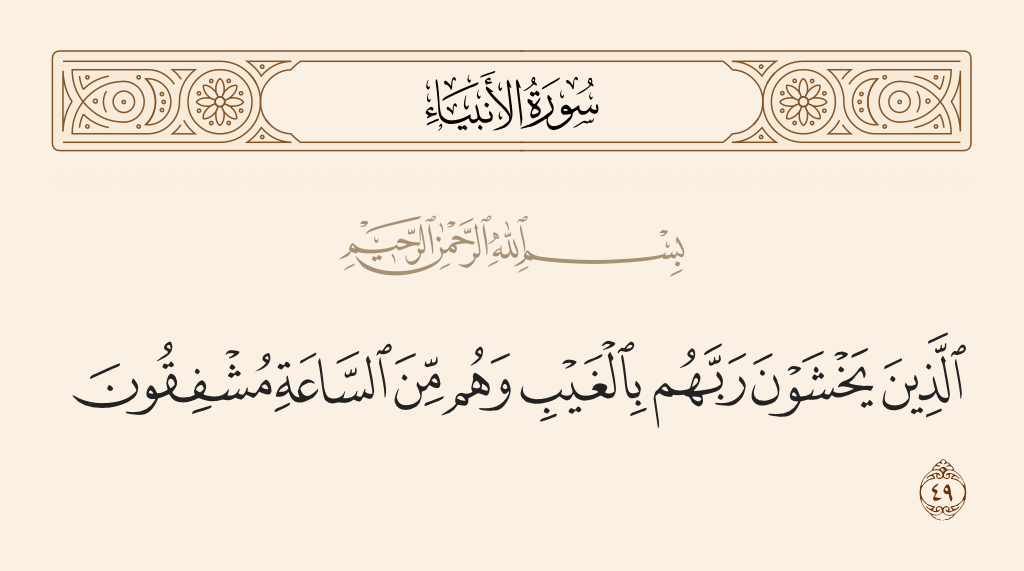 سُورَةُ الأَنبِيَاءِ
بِسْمِ ٱللَّهِ ٱلرَّحْمَٰنِ ٱلرَّحِيمِ
ٱلَّذِينَ يَخْشَوْنَ رَبَّهُم بِٱلْغَيْبِ وَهُم مِّنَ ٱلسَّاعَةِ مُشْفِقُونَ
٤٩